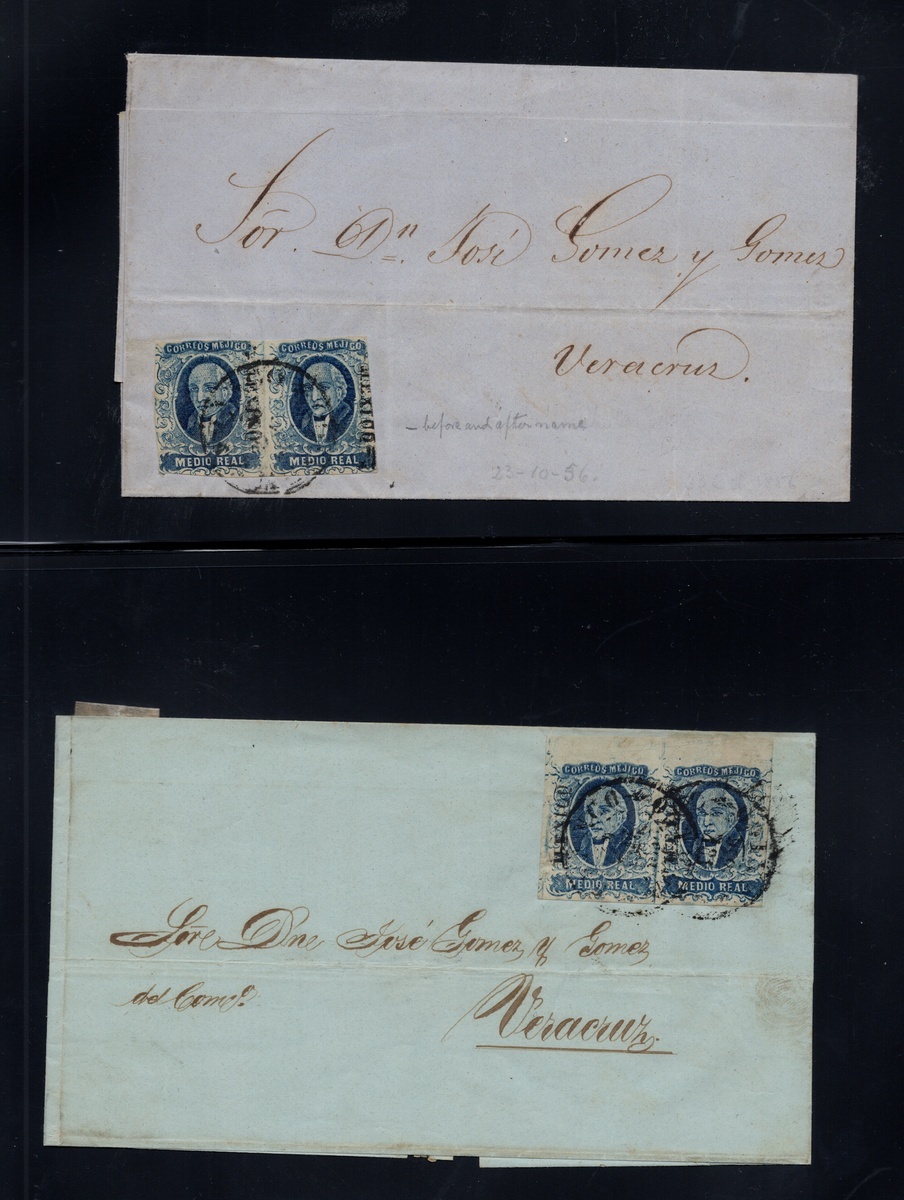 Sor. Dn. José Gomez y Gomez
Veracruz.
CORREOS MEJICO CORREOS MEJICO
MEXICO
MEDIO REAL MEDIO REAL
- before and after name
23-10-56.
CORREOS MEJICO CORREOS MEJICO
MEXICO MEXICO
MEDIO REAL MEDIO REAL
Sore Dne José Gomez y Gomez
del Como.
Veracruz.